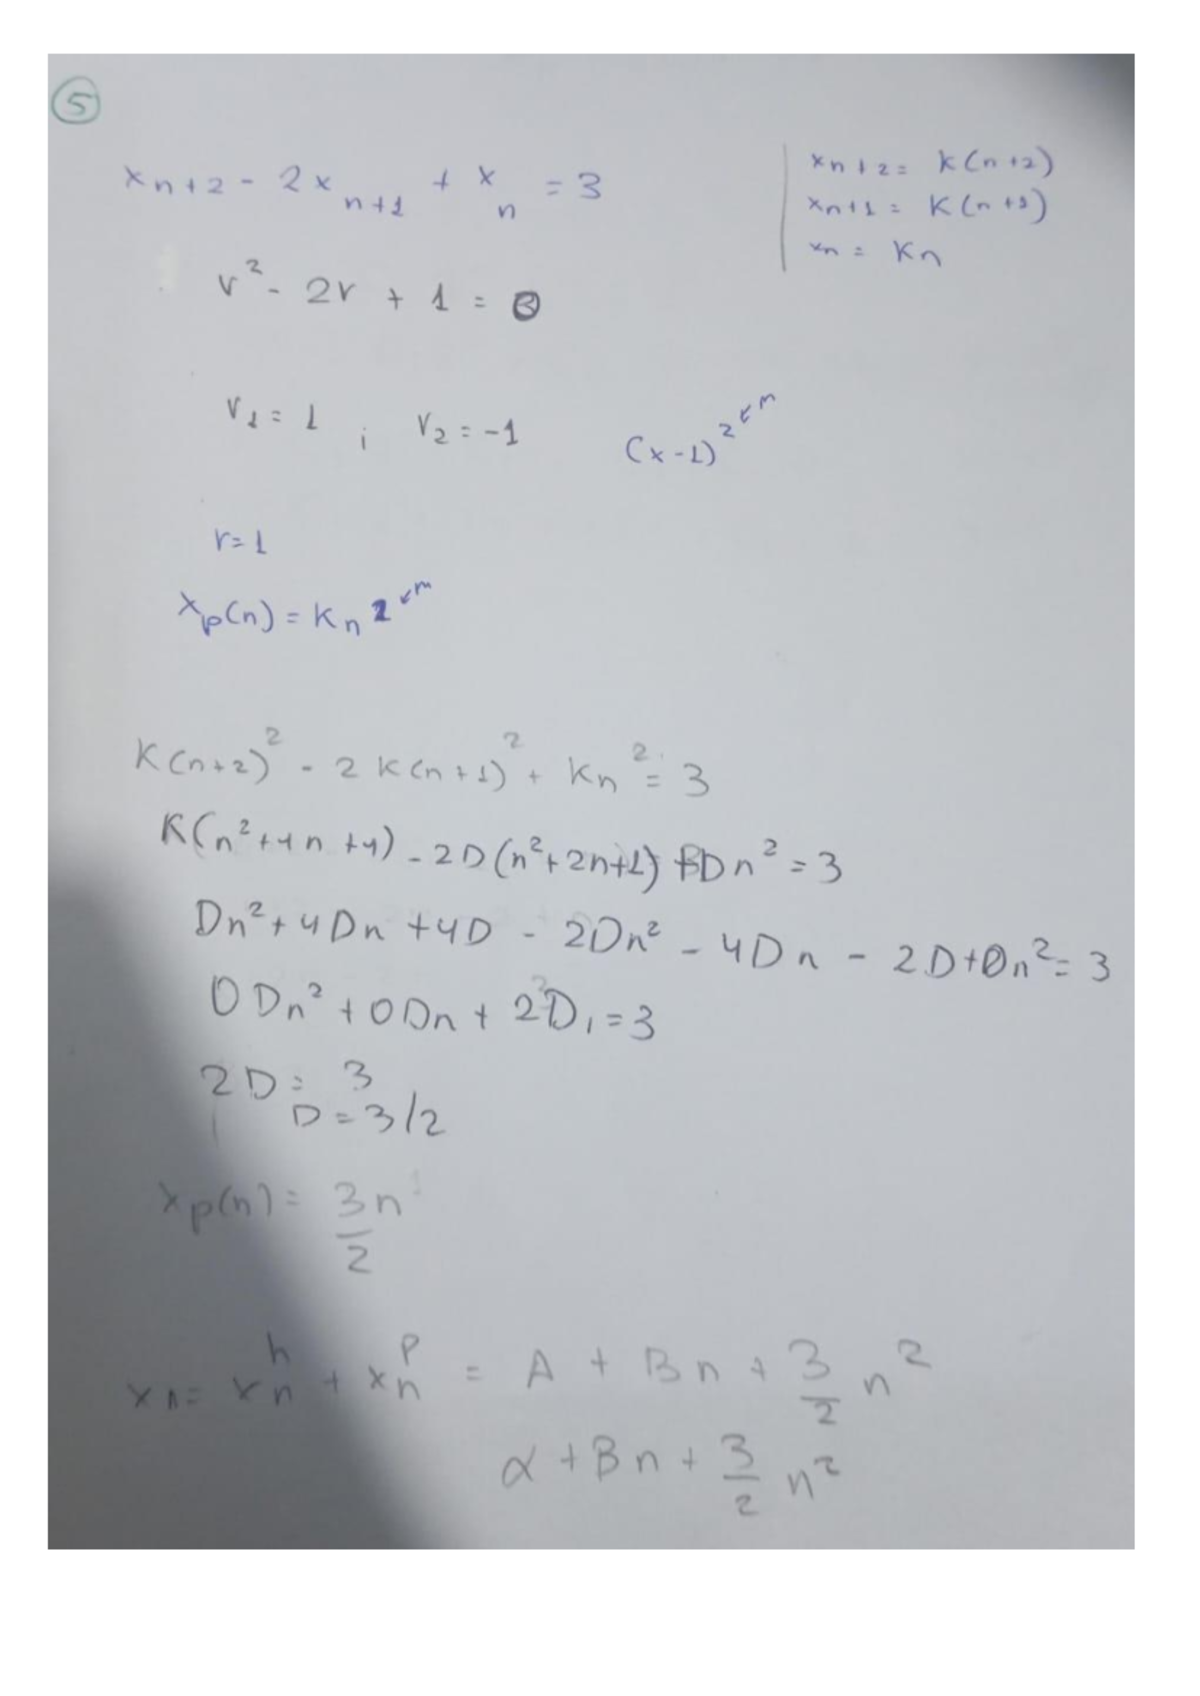 5
x n+2 - 2x n+1 + x n = 3
xn+2 = K(n+2)
xn+1 = K(n+1)
xn = Kn
r² - 2r + 1 = 0
r1 = 1 ; r2 = -1
(x-1)² ← m
r=1
xp(n) = Kn 2 ← m
K(n+2)² - 2K(n+1)² + Kn² = 3
K(n²+4n+4) - 2D(n²+2n+1) + Dn² = 3
Dn²+4Dn+4D - 2Dn² - 4Dn - 2D+Dn² = 3
0Dn² + 0Dn + 2D, = 3
2D = 3
D = 3/2
xp(n) = 3n/2
xn = x n^h + x n^p = A + Bn + 3/2 n²
α + Bn + 3/2 n²